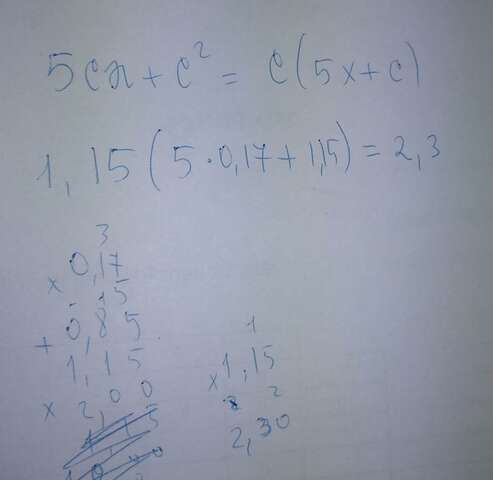 5cx + c² = c(5x+c)
1,15(5·0,17+1,15)=2,3
3
× 0,17
5
+ 0,85
1,15
× 2,00
1
× 1,15
2
2,30